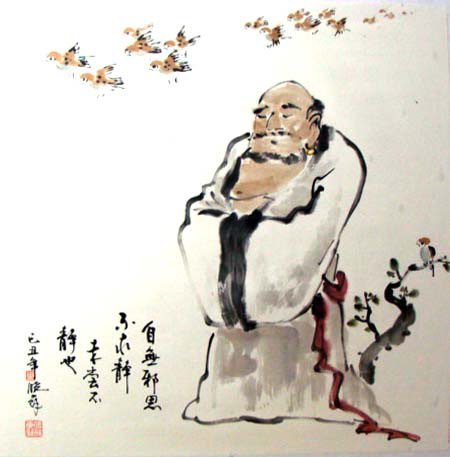 自無邪思
不求静
未尝不
静也
己丑年